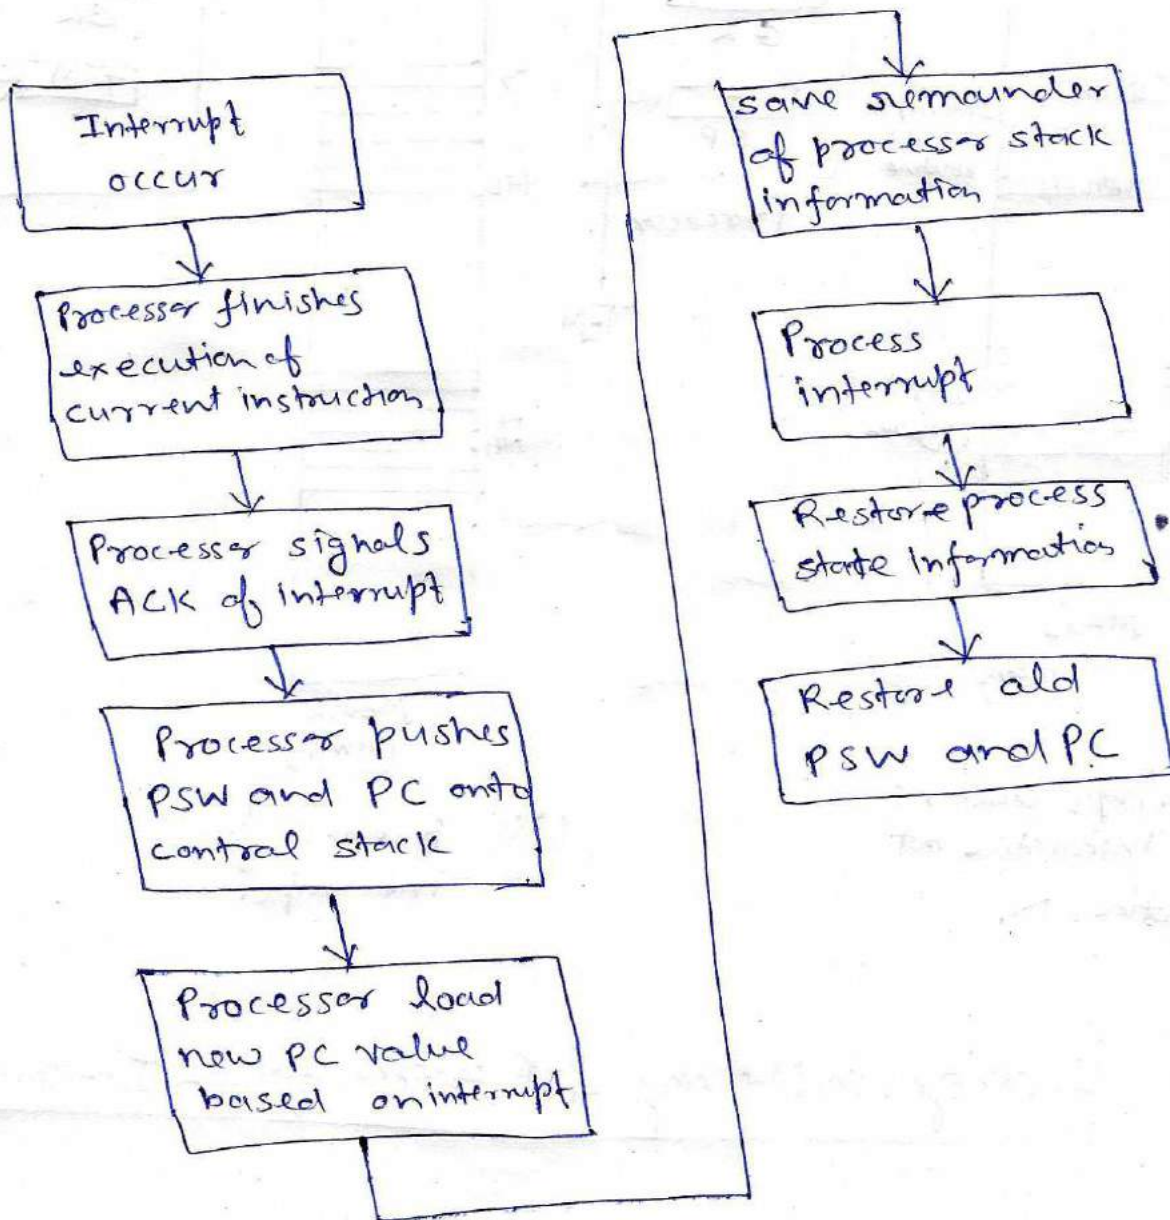 Interrupt
occur
Processor finishes
execution of
current instruction
Processor signals
ACK of interrupt
Processor pushes
PSW and PC onto
control stack
Processor load
new PC value
based on interrupt
save remainder
of processor stack
information
Process
interrupt
Restore process
state information
Restore old
PSW and PC